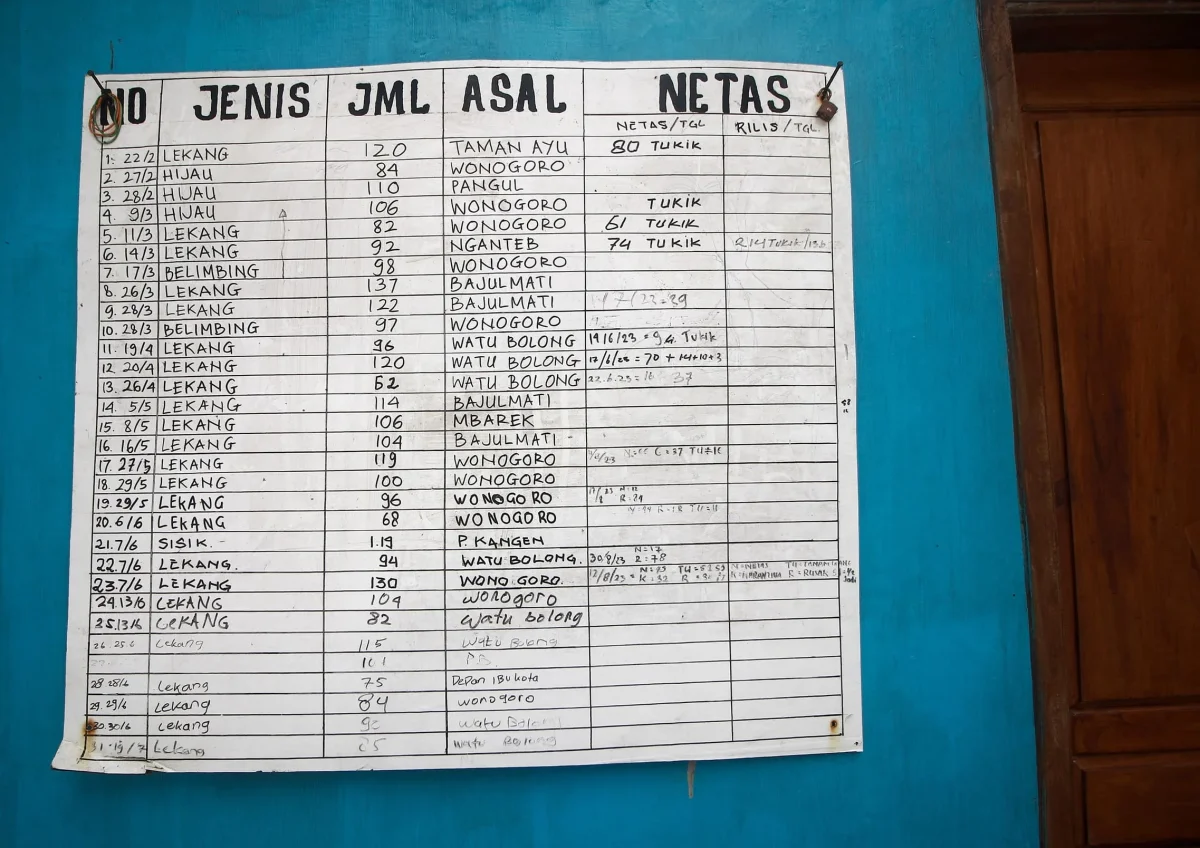 NO JENIS JML ASAL NETAS
NETAS/TGL RILIS/TGL.
1. 22/2 LEKANG 120 TAMAN AYU 80 TUKIK
2. 27/2 HIJAU 84 WONOGORO
3. 28/2 HIJAU 110 PANGUL
4. 9/3 HIJAU 106 WONOGORO TUKIK
5. 11/3 LEKANG 82 WONOGORO 61 TUKIK
6. 14/3 LEKANG 92 NGANTEB 74 TUKIK
7. 17/3 BELIMBING 98 WONOGORO
8. 26/3 LEKANG 137 BAJULMATI
9. 28/3 LEKANG 122 BAJULMATI
10. 28/3 BELIMBING 97 WONOGORO
11. 19/4 LEKANG 96 WATU BOLONG 19/6/23 = 94 Tukik
12. 20/4 LEKANG 120 WATU BOLONG = 70 + 14+10+3
13. 26/4 LEKANG 62 WATU BOLONG 37
14. 5/5 LEKANG 114 BAJULMATI
15. 8/5 LEKANG 106 MBAREK
16. 16/5 LEKANG 104 BAJULMATI
17. 27/5 LEKANG 119 WONOGORO
18. 29/5 LEKANG 100 WONOGORO
19. 29/5 LEKANG 96 WONOGORO
20. 6/6 LEKANG 68 WONOGORO
21. 7/6 SISIK. 119 P. KANGEN
22. 7/6 LEKANG. 94 WATU BOLONG. 30/8/23 N=17 R=78
23. 7/6 LEKANG 130 WONOGORO. 12/8/23
24. 13/6 LEKANG 104 WONOGORO
25. 13/6 LEKANG 82 Watu bolong
26. 25.6 Lekang 115 Watu Bolong
101
28 28/6 Lekang 75 Depan iBu kota
29. 29/6 Lekang 84 wonogoro
30. 30/6 Lekang Watu Bolong
31. 19/7 Lekang Watu Bolong